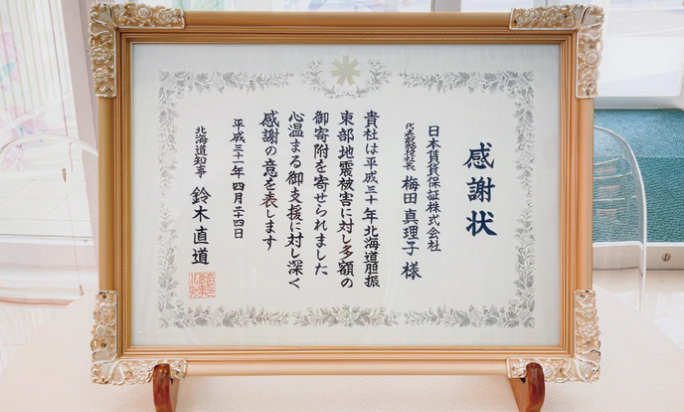 感謝状
日本賃貸保証株式会社
代表取締役社長 梅田 真理子 様
貴社は平成三十年北海道胆振
東部地震被害に対し多額の
御寄附を寄せられました
心温まる御支援に対し深く
感謝の意を表します
平成三十一年四月二十四日
北海道知事 鈴木 直道